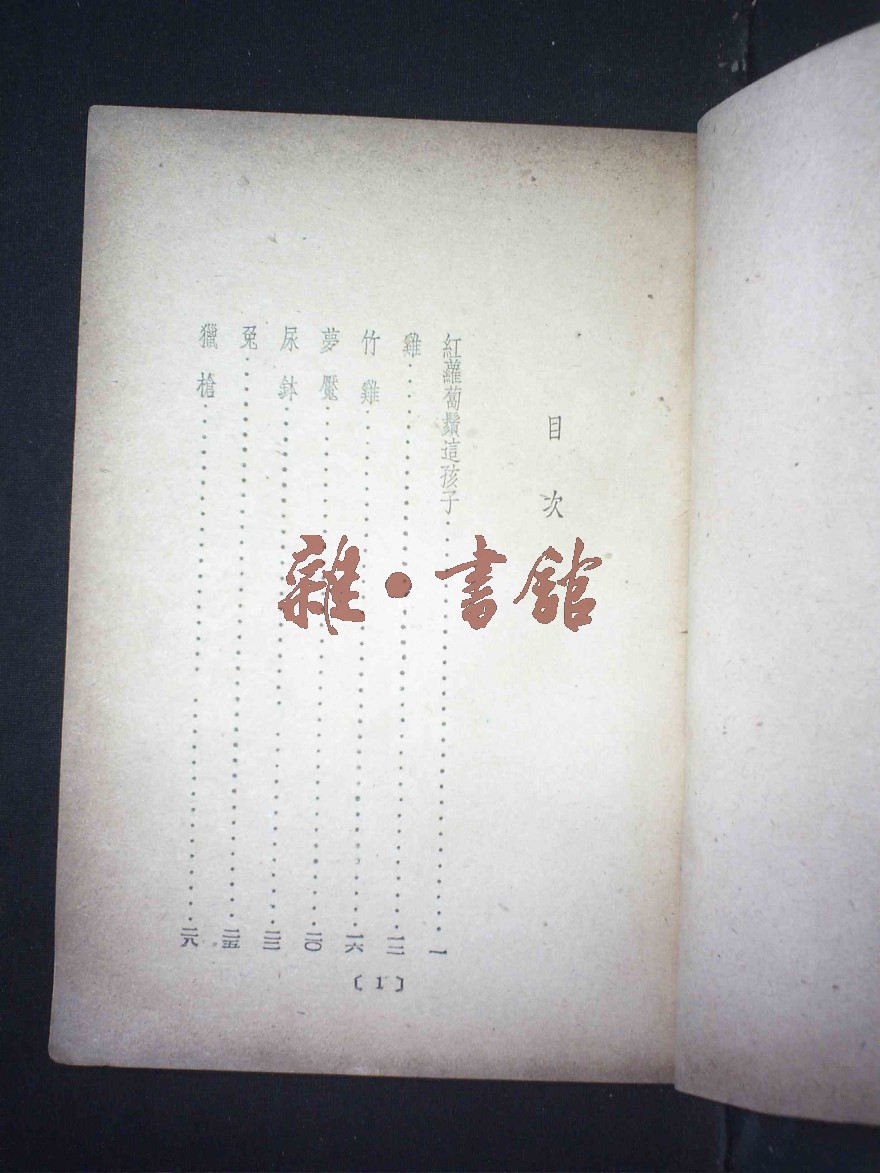 目次
紅蘿蔔鬚這孩子……一
雞……一二
竹雞……一六
夢魘……二〇
尿鉢……二三
兔……二五
獵槍……二八
〔1〕
雜·書館